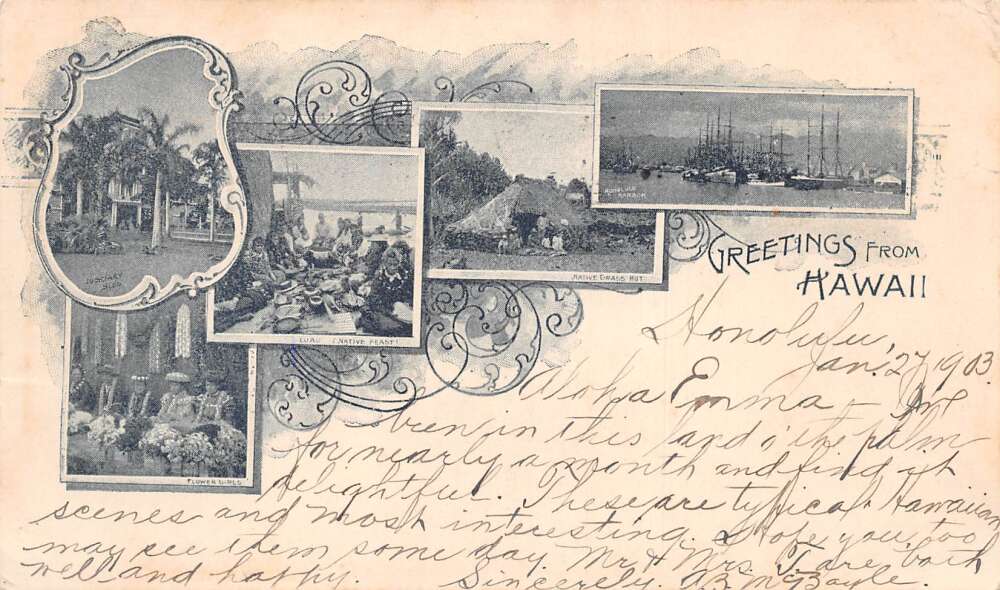 JUDICIARY BLDG
LUAU (NATIVE FEAST)
NATIVE GRASS HUT
HONOLULU HARBOR
FLOWER GIRLS
GREETINGS FROM
HAWAII
Honolulu,
Jan. 27, 1903
Aloha Emma – I've
been in this land o' the palm
for nearly a month and find it
delightful. These are typical Hawaiian
scenes and most interesting. Hope you, too,
may see them some day. Mr & Mrs. T. are both
well and happy. Sincerely.